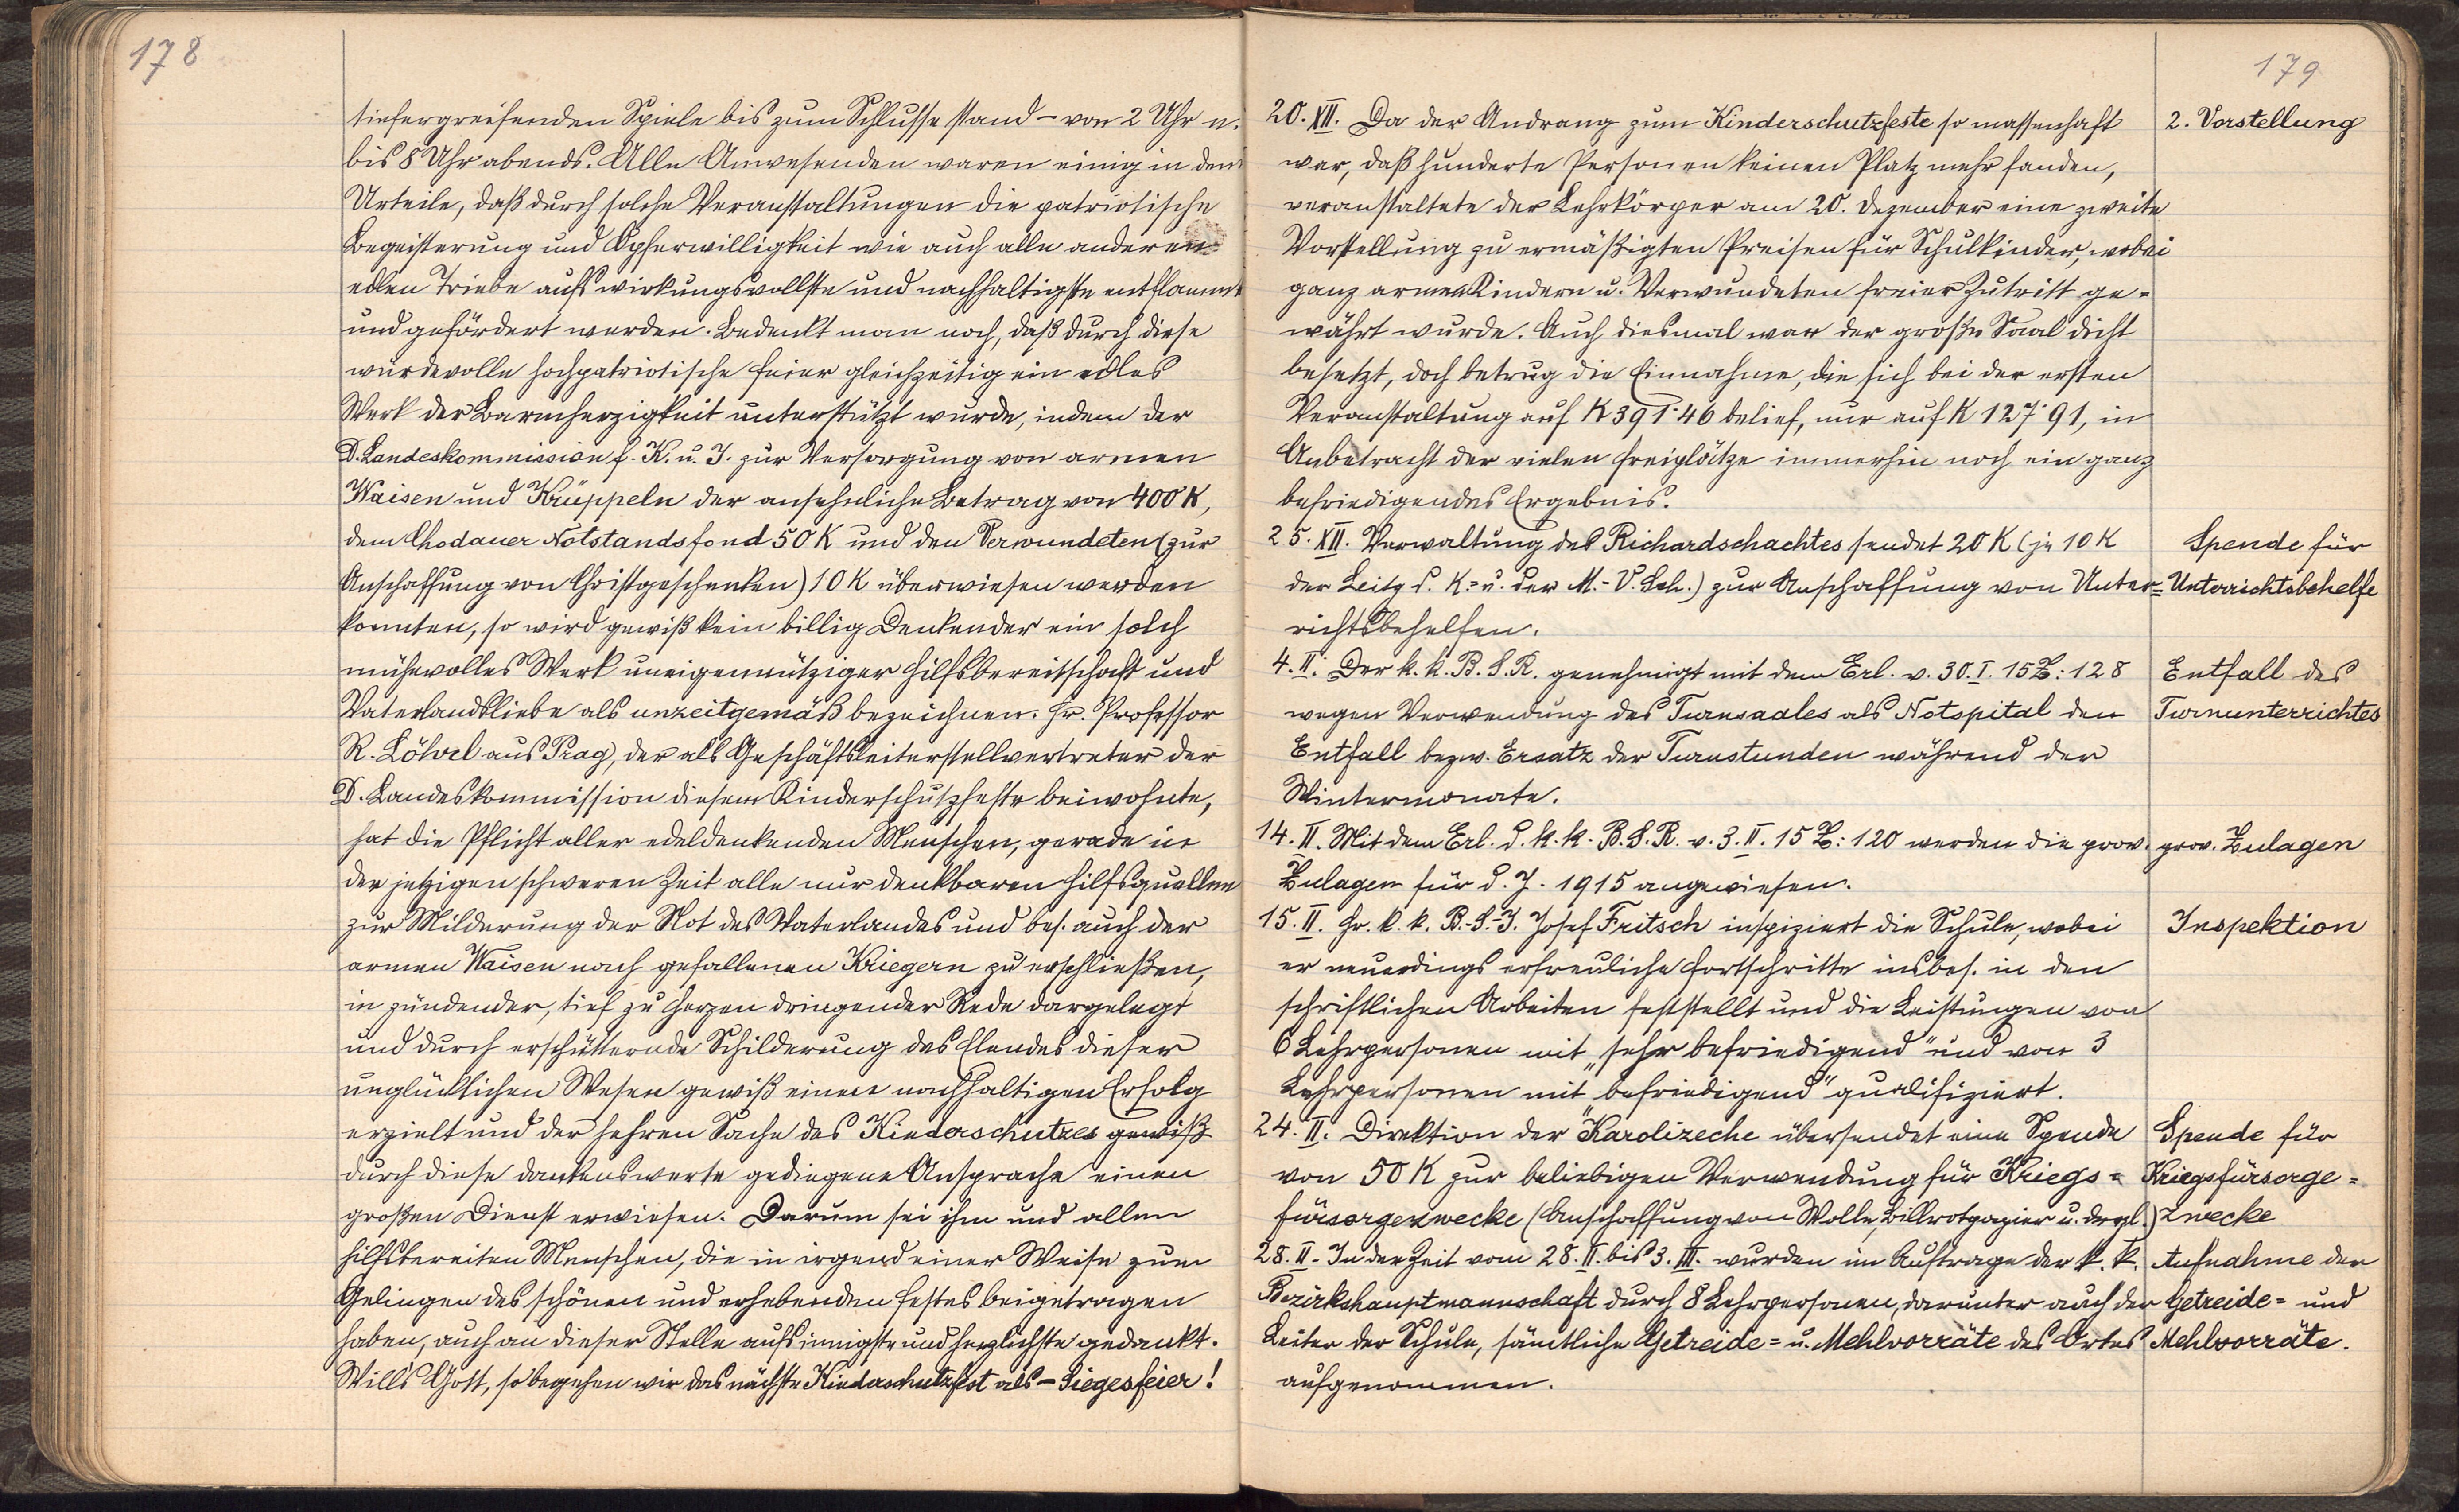 178
tiefergreifenden Spiele bis zum Schlusse stand – von 2 Uhr n.
bis 8 Uhr abends. Alle Anwesenden waren einig in dem
Urteile, daß durch solche Veranstaltungen die patriotische
Begeisterung und Opferwilligkeit wie auch alle anderen
edlen Triebe aufs wirkungsvollste und nachhaltigste entflammt
und gefördert werden. Bedenkt man noch, daß durch diese
würdevolle hochpatriotische Feier gleichzeitig ein edles
Werk der Barmherzigkeit unterstützt wurde, indem der
D. Landeskommission f. K. u. J. zur Versorgung von armen
Waisen und Krüppeln der ansehnliche Betrag von 400 K,
dem Chodauer Notstandsfond 50 K und den Verwundeten (zur
Anschaffung von Christgeschenken) 10 K überwiesen werden
konnten, so wird gewiß kein billig Denkender ein solch
mühevolles Werk uneigennütziger Hilfsbereitschaft und
Vaterlandsliebe als unzeitgemäß bezeichnen. Hr. Professor
R. Löhrl aus Prag, der als Geschäftsleiterstellvertreter der
D. Landeskommission diesem Kinderschutzfeste beiwohnte,
hat die Pflicht aller edeldenkenden Menschen, gerade in
der jetzigen schweren Zeit alle nur denkbaren Hilfsquellen
zur Milderung der Not des Vaterlandes und bes. auch der
armen Waisen nach gefallenen Kriegern zu erschließen,
in zündender, tief zu Herzen dringender Rede dargelegt
und durch erschütternde Schilderung des Elendes dieser
unglücklichen Wesen gewiß einen nachhaltigen Erfolg
erzielt und der hehren Sache des Kinderschutzes gewiß
durch diese dankenswerte gediegene Ansprache einen
großen Dienst erwiesen. Darum sei ihm und allen
hilfsbereiten Menschen, die in irgend einer Weise zum
Gelingen des schönen und erhebenden Festes beigetragen
haben, auch an dieser Stelle aufs innigste und herzlichste gedankt.
Will's Gott, so begehen wir das nächste Kinderschutzfest als – Siegesfeier!
179
20. XII. Da der Andrang zum Kinderschutzfeste so massenhaft
2. Vorstellung
war, daß hunderte Personen keinen Platz mehr fanden,
veranstaltete der Lehrkörper am 20. Dezember eine zweite
Vorstellung zu ermäßigten Preisen für Schulkinder, wobei
ganz armen Kindern u. Verwundeten freier Zutritt ge-
währt wurde. Auch diesmal war der große Saal dicht
besetzt, doch betrug die Einnahme, die sich bei der ersten
Veranstaltung auf K 391·46 belief, nur auf K 127·91, in
Anbetracht der vielen Freiplätze immerhin noch ein ganz
befriedigendes Ergebnis.
25. XII. Verwaltung des Richardschachtes sendet 20 K (je 10 K
Spende für
der Leitg d. K.- u. der M.-V. Sch.) zur Anschaffung von Unter-
Unterrichtsbehelfe
richtsbehelfen.
4. II. Der k. k. B. S. R. genehmigt mit dem Erl. v. 30. I. 15 Z: 128
Entfall des
wegen Verwendung des Turnsaales als Notspital den
Turnunterrichtes
Entfall bezw. Ersatz der Turnstunden während der
Wintermonate.
14. II. Mit dem Erl. d. k. k. B. S. R. v. 3. II. 15 Z: 120 werden die prov.
prov. Zulagen
Zulagen für d. J. 1915 angewiesen.
15. II. Hr. k. k. B.-S.-I. Josef Fritsch inspiziert die Schule, wobei
Inspektion
er neuerdings erfreuliche Fortschritte insbes. in den
schriftlichen Arbeiten feststellt und die Leistungen von
6 Lehrpersonen mit „sehr befriedigend" und von 3
Lehrpersonen mit „befriedigend" qualifiziert.
24. II. Direktion der „Karolizeche übersendet eine Spende
Spende für
von 50 K zur beliebigen Verwendung für Kriegs-
Kriegsfürsorge-
fürsorgezwecke (Anschaffung von Wolle, Billrotpapier u. dergl.)
zwecke
28. II. In der Zeit vom 28. II. bis 3. III. wurden im Auftrage der k. k.
Aufnahme der
Bezirkshauptmannschaft durch 8 Lehrpersonen, darunter auch der
Getreide- und
Leiter der Schule, sämtliche Getreide- u. Mehlvorräte des Ortes
Mehlvorräte.
aufgenommen.